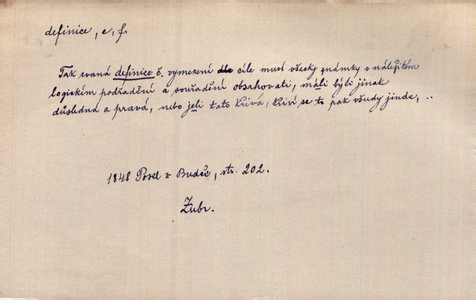 definice, e, f.
Tak zvaná definice č. vymezení dle cíle musí všecky známky v náležitém
logickém podřadění a souřadění obsahovati, máli býti jinak
důsledná a pravá, nebo jeli tato křivá, křiví se to pak všudy jinde, ..
1848 Posel z Budče, str. 202.
Zubr.